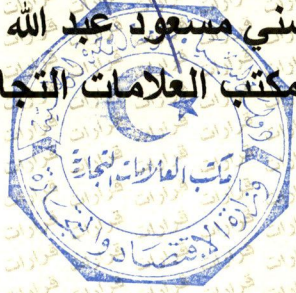 مني مسعود عبد الله
مكتب العلامات التجا
مكتب العلامات التجارية
وزارة الاقتصاد والتجارة
قرارات